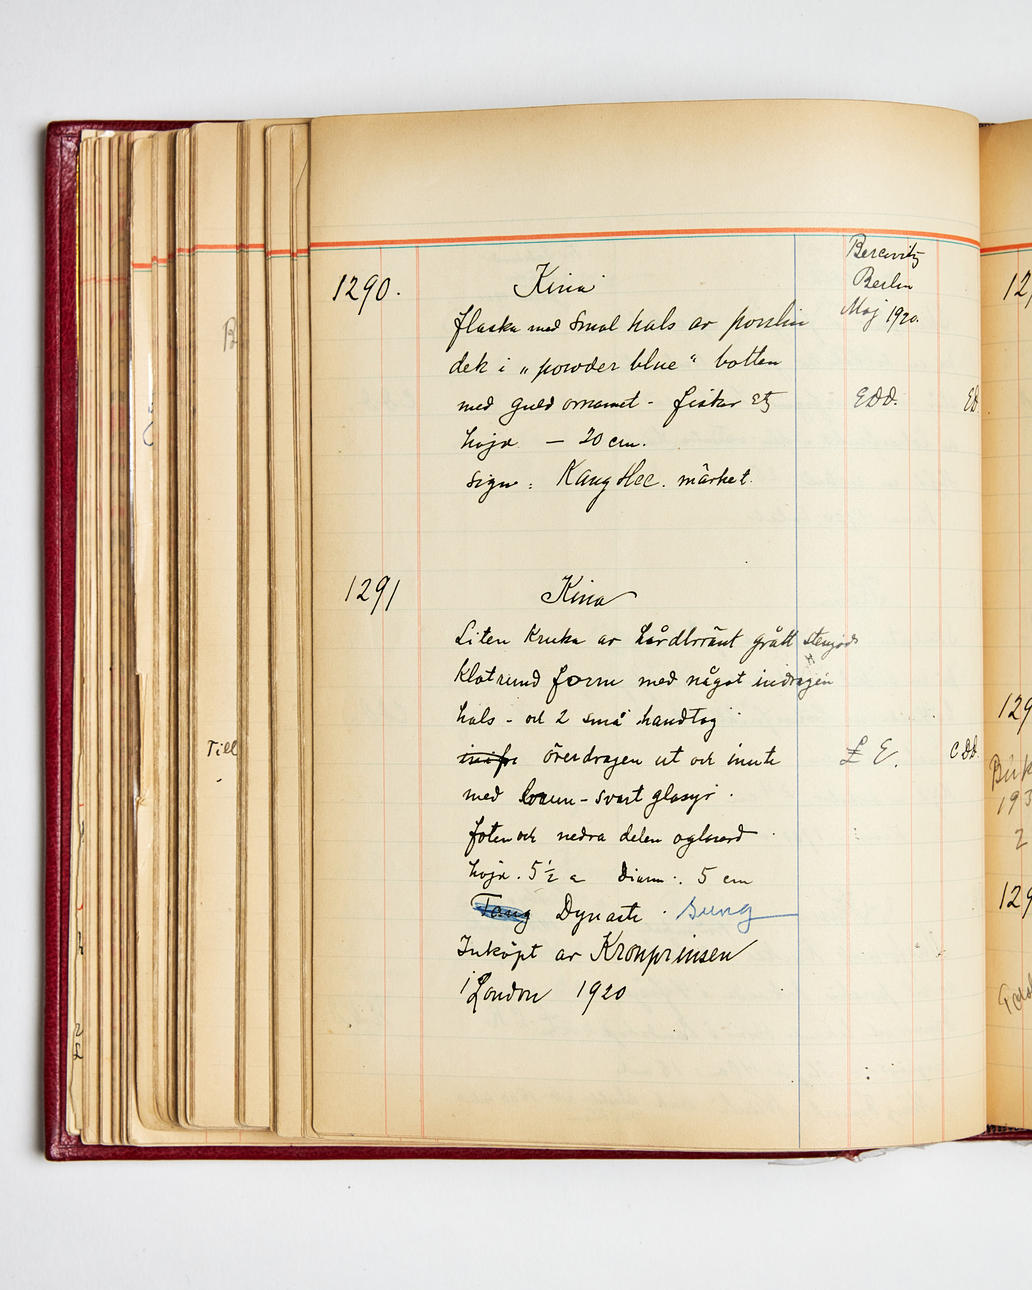 Berewitz
Berlin
Maj 1920.
1290. Kina
flaska med smal hals av porslin
dek i „powder blue“ botten
med guld ornament - fiskar etz EDD. ED
höjd — 20 cm.
sign: Kang Hee. märket.
1291 Kina
Liten Kruka av hårdbränt grått stengods
Klotrund form med något indragen
hals - och 2 små handtag
överdragen ut och inute £ E. CDD
med brun-svart glasyr.
foten och nedra delen oglaserad
höjd. 5½ Diam: 5 cm
Tang Dynasti. Sung
Inköpt av Kronprinsen
i London 1920
Till
12
129
193
2
129